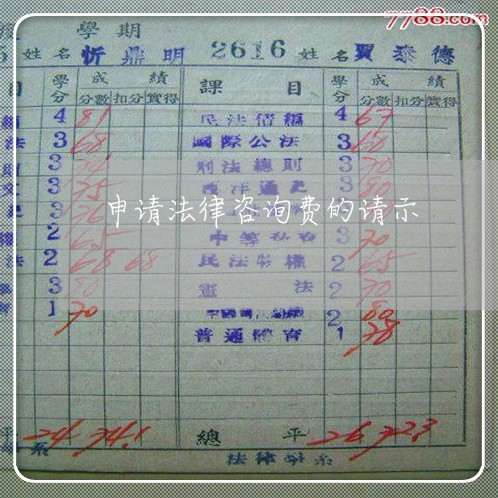 7788.com
學期
姓名 忻鼎明 2616 姓名 賈泰德
目 學分 成績 課目 學分 成績
分數 扣分 實得 分數 扣分 實得
4 81 民法債編 4 67
法 3 68 國際公法 3 60
3 刑法總則 3 70
3 75 西洋通史 3 80
3 76 3
申请法律咨询费的请示
2 65 3 70
法 2 68 68 民法物權 2 65
3 80 憲法 2 70
1 70 2 80
普通體育 1 78
平 24 74.1 總平 26 72.3
系 法律學系